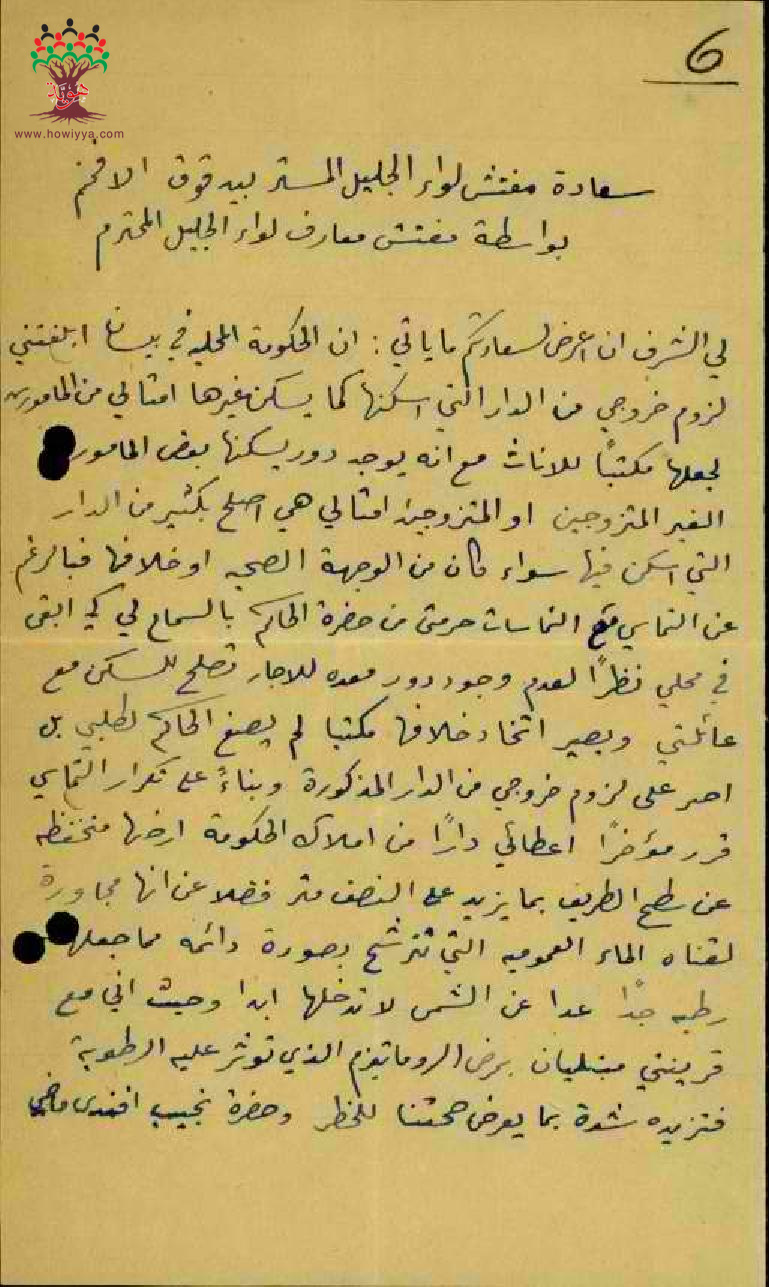 6
هوية
www.howiyya.com
سعادة مفتش لواء الجليل المستر بيدقوق الافخم
بواسطة مفتش معارف لواء الجليل المحترم
لي الشرف ان اعرض لسعادتكم ما ياتي: ان الحكومة المحليه في بيسان ابلغتني
لزوم خروجي من الدار التي اسكنها كما يسكن غيرها امثالي من المامورين
لجعلها مكتبًا للاناث مع انه يوجد دور يسكنها بعض المامورين
الغير المتزوجين او المتزوجين امثالي هي اصلح بكثير من الدار
التي اسكن فيها سواء كان من الوجهة الصحيه او خلافها فبالرغم
عن التماسي التماسات حرمت من حضرة الحاكم بالسماح لي كي ابقى
في محلي نظرًا لعدم وجود دور معده للاجار تصلح للسكن مع
عائلتي ويصير اتخاذ خلافها مكتبا لم يصغ الحاكم لطلبي بل
اصر على لزوم خروجي من الدار المذكورة وبناءً على تكرار التماسي
قرر مؤخرًا اعطائي دارًا من املاك الحكومة ارضها منخفظه
عن سطح الطريق بما يزيد على النصف متر فضلا عن انها مجاورة
لقناه الماء العموميه التي تترشح بصورة دائمه مما جعلها
رطبه جدًا عدا عن الشمس لا تدخلها ابدا وحيث اني مع
قرينتي مبتليان بمرض الروماتيزم الذي تؤثر عليه الرطوبة
فتزيده شدة بما يعرض صحتنا للخطر وحضرة نجيب افندي